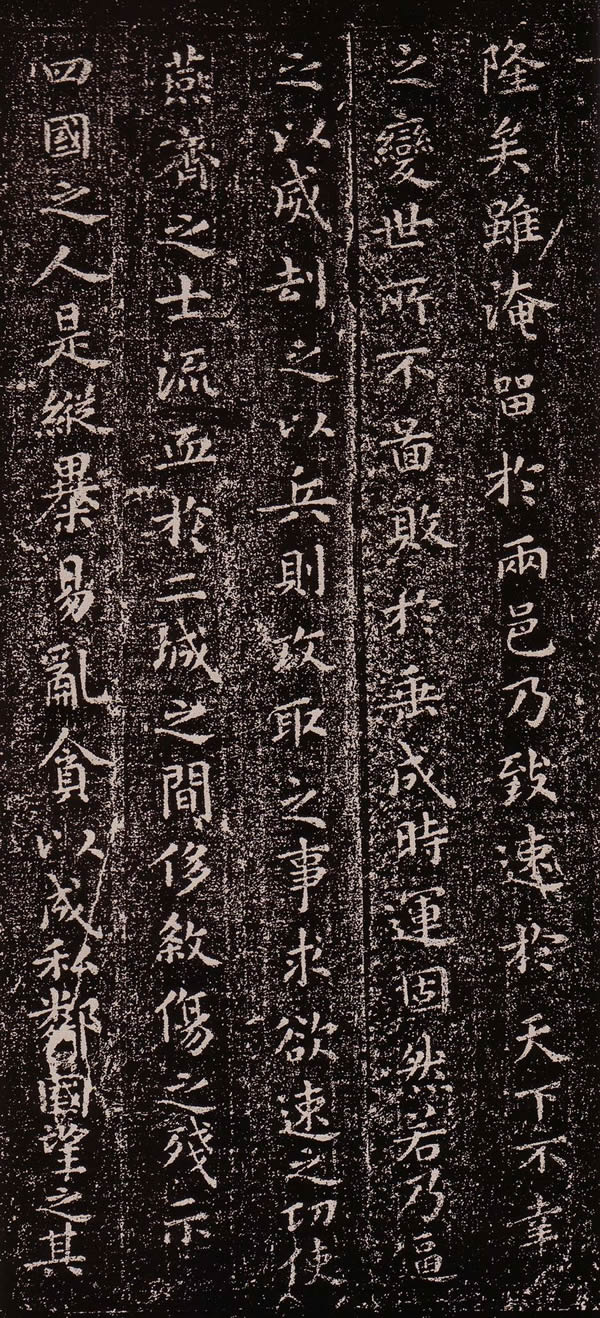 隆矣雖淹留於兩邑乃致速於天下不幸
之變世所不啚敗於垂成時運固然若乃逼
之以威刼之以兵則攻取之事求欲速之功使
燕齊之士流血於二城之間侈敘傷之殘示
四國之人是縱暴易亂貪以成私鄰國望之其